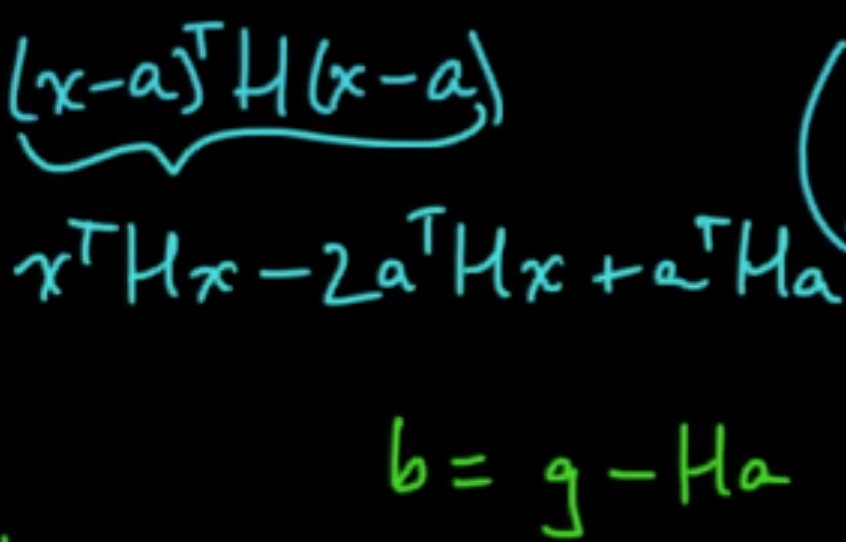 (x-a)ᵀH(x-a)
xᵀHx-2aᵀHx+aᵀHa
b=g-Ha